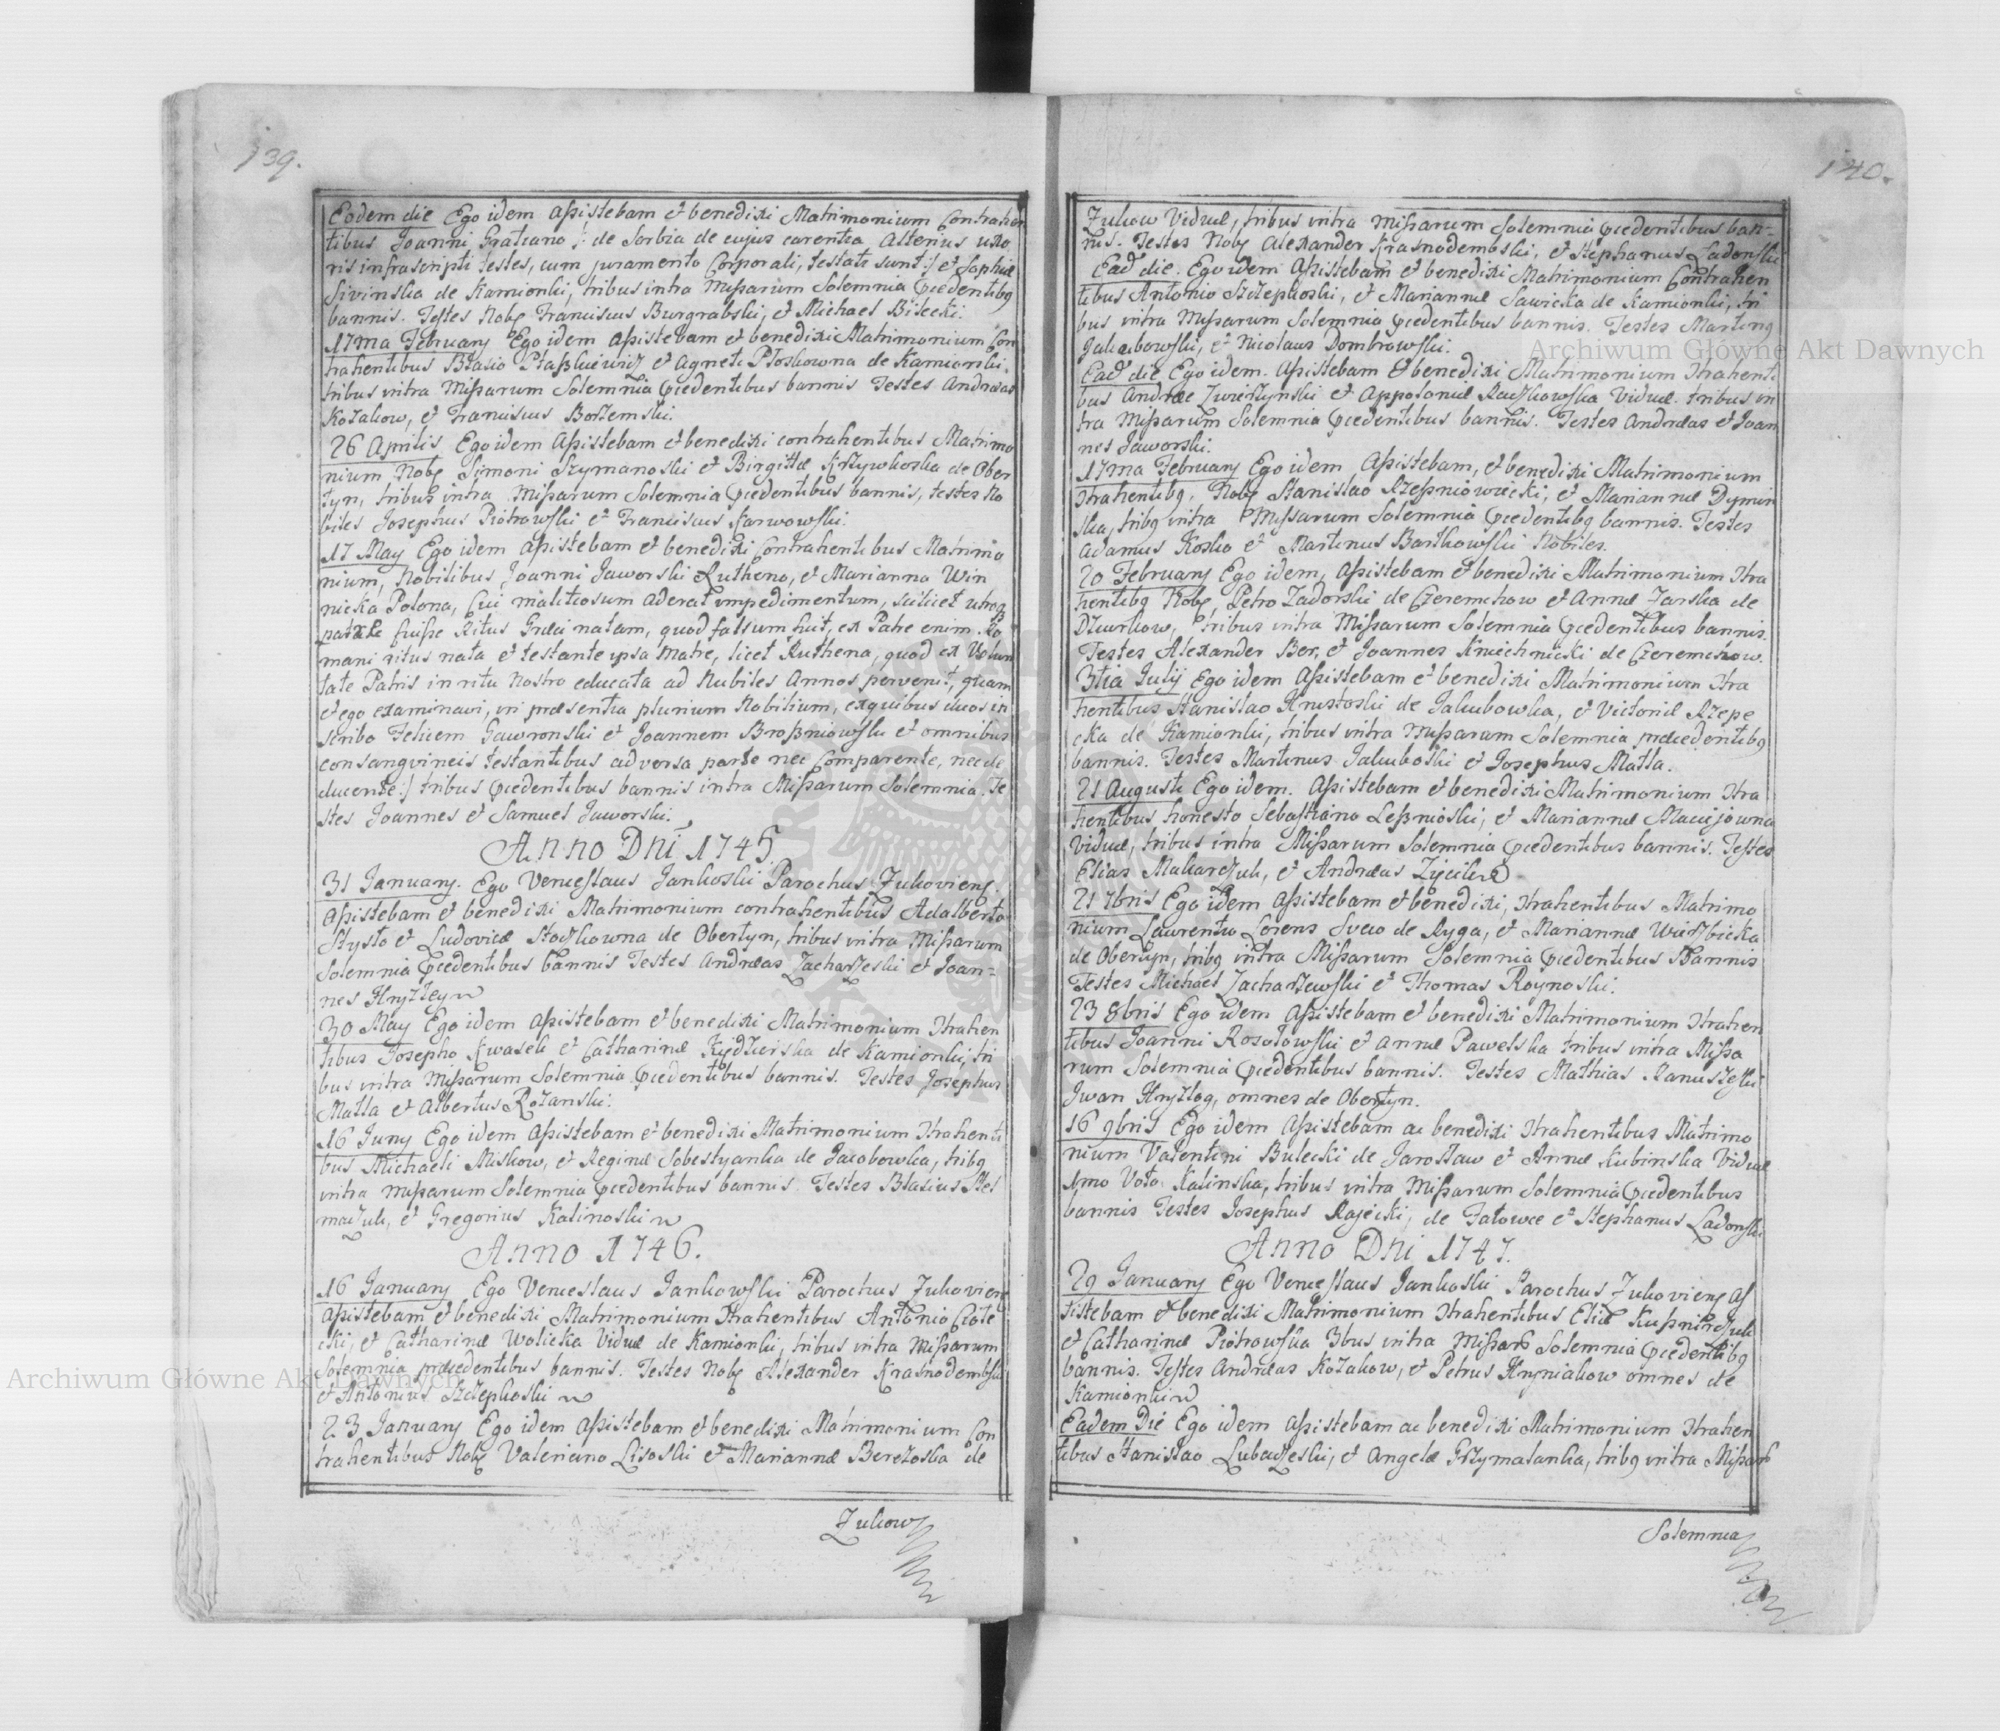 139.
Eodem die Ego idem Assistebam et benedixi Matrimonium Contrahen
tibus Joanni Gratiano /: de Serbia de cujus carentia Alterius uxo
ris infrascripti testes, cum juramento Corporali, testati sunt:/ et Sophiæ
Sivinska de Kamionki, tribus intra Missarum Solemnia præcedentibq
bannis. Testes Nobs Franciscus Burgrabski, et Michael Bilecki.
17ma February Ego idem Assistebam et benedixi Matrimonium Con
trahentibus Blasio Ptaszkiewicz et Agneti Ploskowna de Kamionki,
tribus intra Missarum Solemnia præcedentibus bannis Testes Andreas
Kozakow, et Franciscus Borzemski.
26 Aprilis Ego idem Assistebam et benedixi contrahentibus Matrimo
nium Nobs Simoni Szymanoski et Birgittæ Krzywkoska de Ober
tyn, tribus intra Missarum Solemnia præcedentibus bannis, testes No
biles Josephus Piotrowski et Franciscus Karwowski.
17 May Ego idem Assistebam et benedixi Contrahentibus Matrimo
nium, Nobilibus Joanni Jaworski Rutheno, et Marianna Win
nicka Polona, Cui malitiosum aderat impedimentum, scilicet utroq
patre fuisse Ritus Græci natam, quod falsum fuit, ex Patre enim Ro
mani ritus nata et testante ipsa Matre, licet Ruthena, quod ex Volun
tate Patris in ritu Nostro educata ad Nubiles Annos pervenit, quam
et ego examinavi, in præsentia plurium Nobilium, ex quibus duos in
scribo Felicem Gawronski et Joannem Brosniowski et omnibus
consangvineis testantibus adversa parte nec Comparente, nec de
ducente:/ tribus præcedentibus bannis intra Missarum Solemnia. Te
stes Joannes et Samuel Jaworski.
Anno Dni 1745.
31 January. Ego Venceslaus Jankoski Parochus Zukoviens.
Assistebam et benedixi Matrimonium contrahentibus Adalberto
Stysto et Ludovicæ Stoczkowna de Obertyn, tribus intra Missarum
Solemnia præcedentibus bannis Testes Andreas Zacharzeski et Joan-
nes Hryzley
30 May Ego idem Assistebam et benedixi Matrimonium Ctrahen
tibus Josepho Kwasek et Catharinæ Kędzierska de Kamionki, tri
bus intra Missarum Solemnia præcedentibus bannis. Testes Josephus
Matla et Albertus Rozanski.
16 Juny Ego idem Assistebam et benedixi Matrimonium Ctrahenti
bus Michaeli Miskow, et Reginæ Sobestyanka de Jacobowka, tribq
intra Missarum Solemnia præcedentibus bannis. Testes Blasius Stel
maczuk, et Gregorius Kalinoski
Anno 1746.
16 January Ego Venceslaus Jankowski Parochus Zukoviens
Assistebam et benedixi Matrimonium Ctrahentibus Antonio Ciote
cki, et Catharinæ Wolicka Viduæ de Kamionki, tribus intra Missarum
Solemnia præcedentibus bannis. Testes Nobs Alexander Krasnodembski
et Antonius Szczepkoski
23 January Ego idem Assistebam et benedixi Matrimonium Con
trahentibus Nobs Valeriano Lisoski et Mariannæ Berezoska de
Zukow
140.
Zukow Viduæ, tribus intra Missarum Solemnia præcedentibus ban-
nis. Testes Nobs Alexander Krasnodemboski, et Stephanus Ladonski
Ead die. Ego idem Assistebam et benedixi Matrimonium Contrahen
tibus Antonio Szczepkoski, et Mariannæ Sawicka de Kamionki, tri
bus intra Missarum Solemnia præcedentibus bannis. Testes Martinq
Jakubowski, et Nicolaus Dombrowski.
Ead die Ego idem Assistebam et benedixi Matrimonium Ctrahenti
bus Andreæ Zwierzynski et Appoloniæ Raczkowska Viduæ tribus in
tra Missarum Solemnia præcedentibus bannis. Testes Andreas et Joan
nes Jaworski.
17ma February Ego idem Assistebam, et benedixi Matrimonium
Ctrahentibq, Nobs Stanislao Rzeszniowiecki, et Mariannæ Dymin
ska, tribq intra Missarum Solemnia præcedentibq bannis. Testes
Adamus Kosko et Martinus Bartkowski Nobiles.
20 February Ego idem, Assistebam et benedixi Matrimonium Ctra
hentibq Nobs Petro Zadorski de Czeremchow et Annæ Jarska de
Dzurkow, tribus intra Missarum Solemnia præcedentibus bannis.
Testes Alexander Ber, et Joannes Kniechnicki de Czeremchow.
3tia Julij Ego idem Assistebam et benedixi Matrimonium Ctra
hentibus Stanislao Krustoski de Jakubowka, et Victoriæ Rzepe
cka de Kamionki, tribus intra Missarum Solemnia præcedentibq
bannis. Testes Martinus Jakuboski et Josephus Matla.
21 Augusti Ego idem. Assistebam et benedixi Matrimonium Ctra
hentibus honesto Sebastiano Lesznioski, et Mariannæ Maciejowna
Viduæ, tribus intra Missarum Solemnia præcedentibus bannis. Testes
Elias Makarczuk, et Andreas Zyciliez
21 7bris Ego idem Assistebam et benedixi, Ctrahentibus Matrimo
nium Laurentio Lorens Sveco de Ryga, et Mariannæ Wierzbicka
de Obertyn, tribq intra Missarum Solemnia præcedentibus Bannis
Testes Michael Zacharzewski et Thomas Roynoski.
23 8bris Ego idem Assistebam et benedixi Matrimonium Ctrahen
tibus Joanni Rosolowski et Annæ Pawelska tribus intra Missa
rum Solemnia præcedentibus bannis. Testes Mathias Ranuszeski
Iwan Hryzlog, omnes de Obertyn.
16 9bris Ego idem Assistebam ac benedixi Ctrahentibus Matrimo
nium Valentini Bulecki de Jaroslaw et Annæ Kubinska Viduæ
1mo Voto Kalinska, tribus intra Missarum Solemnia præcedentibus
bannis Testes Josephus Rajecki, de Fatowce et Stephanus Ladonski
Anno Dni 1747.
29 January Ego Venceslaus Jankoski Parochus Zukoviens As
sistebam et benedixi Matrimonium Ctrahentibus Eliæ Kusznirczuk
et Catharinæ Piotrowska 3bus intra Missar Solemnia præcedentibq
bannis. Testes Andreas Kozakow, et Petrus Hryniakow omnes de
Kamionki
Eadem Die Ego idem Assistebam ac benedixi Matrimonium Ctrahen
tibus Stanislao Lubaczeski, et Angelæ Grzymalanka, tribq intra Missar
Solemnia
Archiwum Główne Akt Dawnych
Archiwum Główne Akt Dawnych